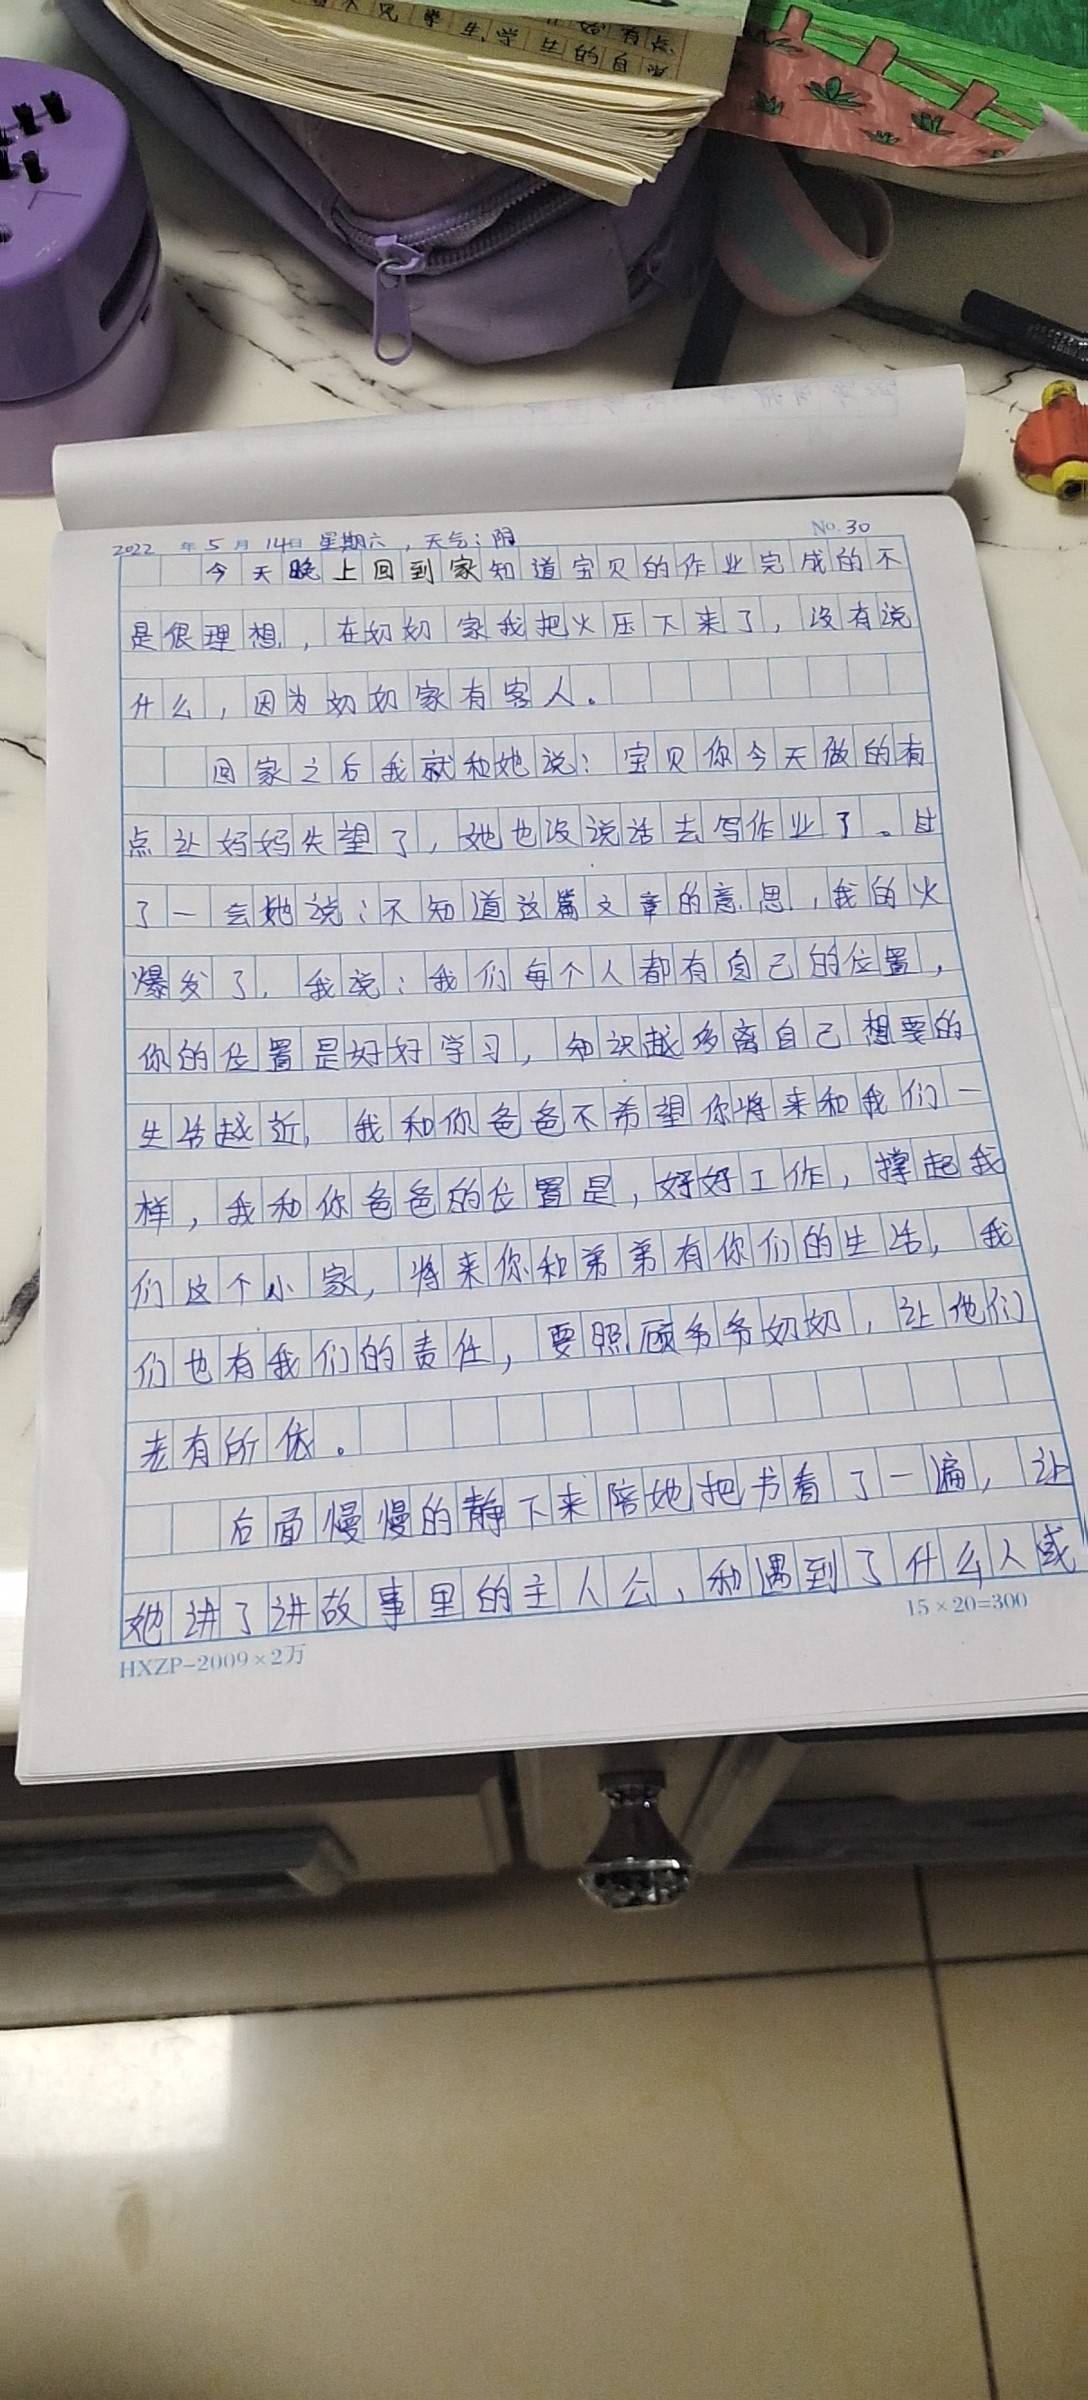 学生学生的自
2022年5月14日 星期六，天气：阴
No. 30
今天晚上回到家知道宝贝的作业完成的不
是很理想，在奶奶家我把火压下来了，没有说
什么，因为奶奶家有客人。
回家之后我就和她说：宝贝你今天做的有
点让妈妈失望了，她也没说话去写作业了。过
了一会她说：不知道这篇文章的意思，我的火
爆发了，我说：我们每个人都有自己的位置，
你的位置是好好学习，知识越多离自己想要的
生活越近，我和你爸爸不希望你将来和我们一
样，我和你爸爸的位置是，好好工作，撑起我
们这个小家，将来你和弟弟有你们的生活，我
们也有我们的责任，要照顾爷爷奶奶，让他们
老有所依。
后面慢慢的静下来陪她把书看了一遍，让
她讲了讲故事里的主人公，和遇到了什么人或
15×20=300
HXZP-2009×2万